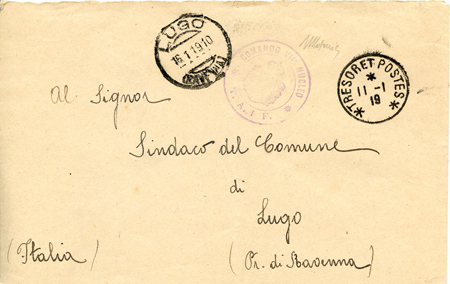 LUGO
16.1.19.10
(RAVENNA)
COMANDO NUCLEO
T.A.I.F.
*TRESOR ET POSTES*
*
11-1
19
Al Signor
Sindaco del Comune
di
Lugo
(Italia)
(Pr. di Ravenna)